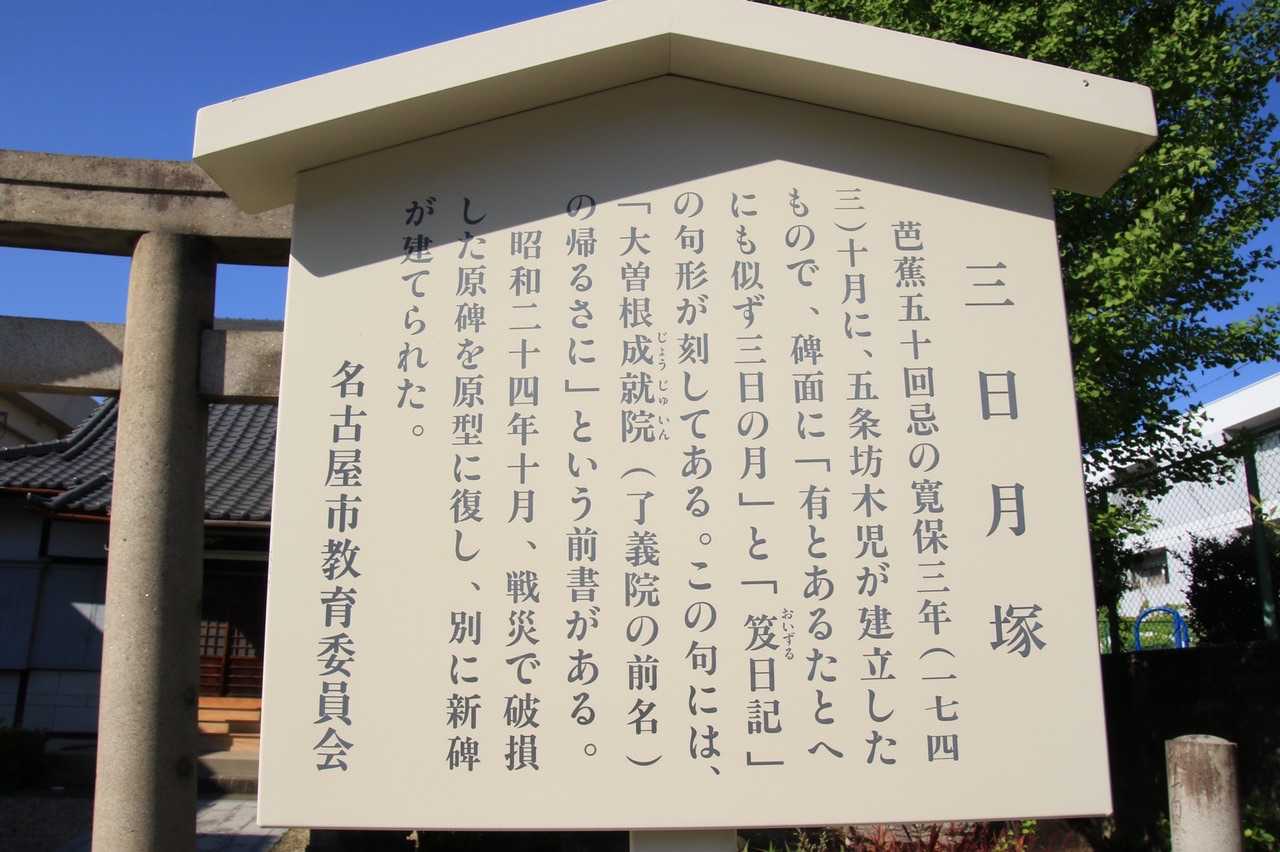 三日月塚
芭蕉五十回忌の寛保三年(一七四
三)十月に、五条坊木児が建立した
もので、碑面に「有とあるたとへ
にも似ず三日の月」と「笈日記」
おいずる
の句形が刻してある。この句には、
「大曽根成就院(了義院の前名)
じょうじゅいん
の帰るさに」という前書がある。
昭和二十四年十月、戦災で破損
した原碑を原型に復し、別に新碑
が建てられた。
名古屋市教育委員会